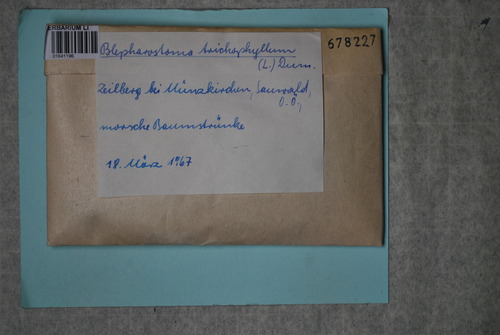 HERBARIUM LI
678227
Blepharostoma trichophyllum
(L.) Dum.
Zeilberg bei Münzkirchen, Sauwald,
O.Ö.,
morsche Baumstrünke
18. März 1967